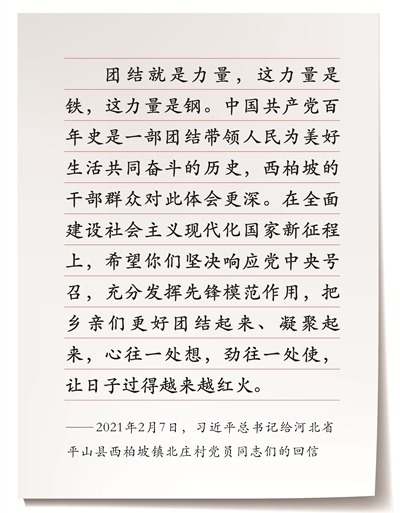 团结就是力量，这力量是
铁，这力量是钢。中国共产党百
年史是一部团结带领人民为美好
生活共同奋斗的历史，西柏坡的
干部群众对此体会更深。在全面
建设社会主义现代化国家新征程
上，希望你们坚决响应党中央号
召，充分发挥先锋模范作用，把
乡亲们更好团结起来、凝聚起
来，心往一处想，劲往一处使，
让日子过得越来越红火。
——2021年2月7日，习近平总书记给河北省
平山县西柏坡镇北庄村党员同志们的回信